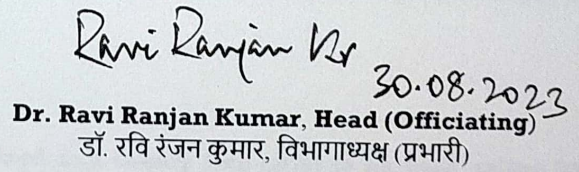 Ravi Ranjan Kr
30.08.2023
Dr. Ravi Ranjan Kumar, Head (Officiating)
डॉ. रवि रंजन कुमार, विभागाध्यक्ष (प्रभारी)